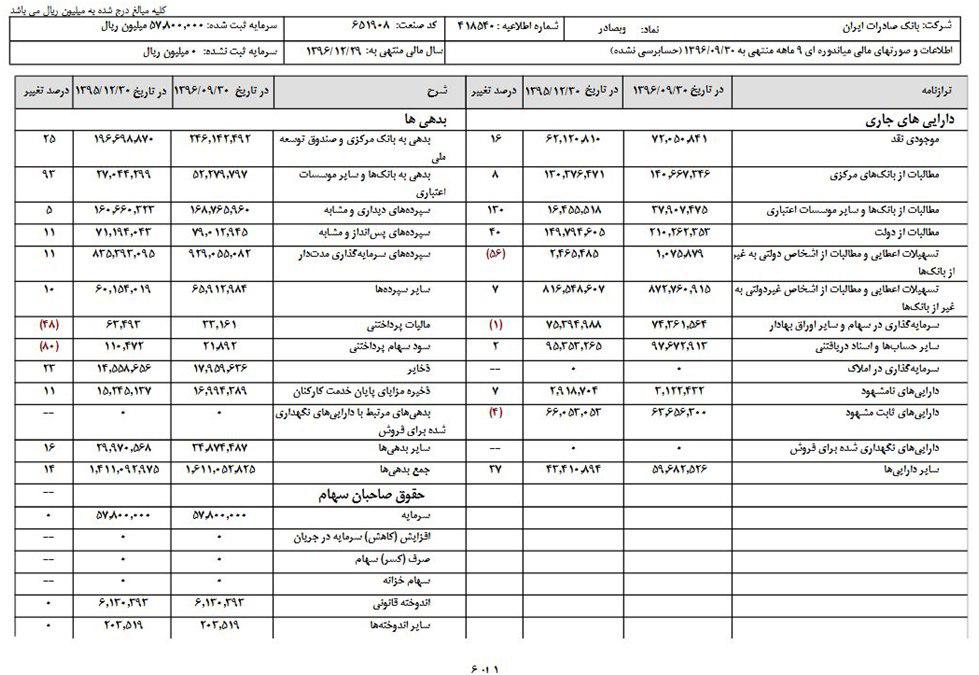 کلیه مبالغ درج شده به میلیون ریال می باشد
شرکت: بانک صادرات ایران نماد: وبصادر شماره اطلاعیه : ۴۱۸۵۴۰ کد صنعت: ۶۵۱۹۰۸ سرمایه ثبت شده: ۵۷,۸۰۰,۰۰۰ میلیون ریال
اطلاعات و صورتهای مالی میاندوره ای ۹ ماهه منتهی به ۱۳۹۶/۰۹/۳۰ (حسابرسی نشده) سال مالی منتهی به: ۱۳۹۶/۱۲/۲۹ سرمایه ثبت نشده: ۰ میلیون ریال
ترازنامه در تاریخ ۱۳۹۶/۰۹/۳۰ در تاریخ ۱۳۹۵/۱۲/۳۰ درصد تغییر شرح در تاریخ ۱۳۹۶/۰۹/۳۰ در تاریخ ۱۳۹۵/۱۲/۳۰ درصد تغییر
دارایی های جاری بدهی ها
موجودی نقد ۷۲,۰۵۰,۸۴۱ ۶۲,۱۲۰,۸۱۰ ۱۶ بدهی به بانک مرکزی و صندوق توسعه ۲۴۶,۱۴۲,۴۹۲ ۱۹۶,۶۹۸,۸۷۰ ۲۵
ملی
مطالبات از بانک‌های مرکزی ۱۴۰,۶۶۷,۳۴۶ ۱۳۰,۳۷۶,۴۷۱ ۸ بدهی به بانک‌ها و سایر موسسات ۵۲,۲۷۹,۷۹۷ ۲۷,۰۴۴,۲۹۹ ۹۳
اعتباری
مطالبات از بانک‌ها و سایر موسسات اعتباری ۳۷,۹۰۷,۴۷۵ ۱۶,۴۵۵,۵۱۸ ۱۳۰ سپرده‌های دیداری و مشابه ۱۶۸,۷۶۵,۹۶۰ ۱۶۰,۶۶۰,۳۲۳ ۵
مطالبات از دولت ۲۱۰,۲۶۲,۳۵۳ ۱۴۹,۷۹۴,۶۰۵ ۴۰ سپرده‌های پس‌انداز و مشابه ۷۹,۰۱۲,۹۴۵ ۷۱,۱۹۴,۰۴۳ ۱۱
تسهیلات اعطایی و مطالبات از اشخاص دولتی به غیر ۱,۰۷۵,۸۷۹ ۲,۴۶۵,۴۸۵ (۵۶) سپرده‌های سرمایه‌گذاری مدت‌دار ۹۲۹,۰۵۵,۰۸۲ ۸۳۵,۳۹۳,۰۹۵ ۱۱
از بانک‌ها
تسهیلات اعطایی و مطالبات از اشخاص غیردولتی به ۸۷۲,۷۶۰,۹۱۵ ۸۱۶,۵۴۸,۶۰۷ ۷ سایر سپرده‌ها ۶۵,۹۱۲,۹۸۴ ۶۰,۱۵۴,۰۱۹ ۱۰
غیر از بانک‌ها
سرمایه‌گذاری در سهام و سایر اوراق بهادار ۷۴,۳۶۱,۵۶۴ ۷۵,۳۹۴,۹۸۸ (۱) مالیات پرداختنی ۳۳,۱۶۱ ۶۳,۴۹۳ (۴۸)
سایر حساب‌ها و اسناد دریافتنی ۹۷,۶۷۲,۹۱۳ ۹۵,۳۵۳,۲۶۵ ۲ سود سهام پرداختنی ۲۱,۸۹۲ ۱۱۰,۴۷۲ (۸۰)
سرمایه‌گذاری در املاک ۰ ۰ -- ذخایر ۱۷,۹۵۹,۶۳۶ ۱۴,۵۵۸,۶۵۶ ۲۳
دارایی‌های نامشهود ۳,۱۲۲,۴۳۲ ۲,۹۱۸,۷۰۴ ۷ ذخیره مزایای پایان خدمت کارکنان ۱۶,۹۹۴,۳۸۹ ۱۵,۲۴۵,۱۳۷ ۱۱
دارایی‌های ثابت مشهود ۶۳,۶۵۶,۳۰۰ ۶۶,۰۵۳,۰۵۳ (۴) بدهی‌های مرتبط با دارایی‌های نگهداری ۰ ۰ --
شده برای فروش
دارایی‌های نگهداری شده برای فروش ۰ ۰ -- سایر بدهی‌ها ۳۴,۸۷۴,۴۸۷ ۲۹,۹۷۰,۵۶۸ ۱۶
سایر دارایی‌ها ۵۹,۶۸۲,۵۲۶ ۴۳,۴۱۰,۸۹۴ ۳۷ جمع بدهی‌ها ۱,۶۱۱,۰۵۲,۸۲۵ ۱,۴۱۱,۰۹۲,۹۷۵ ۱۴
حقوق صاحبان سهام --
سرمایه ۵۷,۸۰۰,۰۰۰ ۵۷,۸۰۰,۰۰۰ ۰
افزایش (کاهش) سرمایه در جریان ۰ ۰ --
صرف (کسر) سهام ۰ ۰ --
سهام خزانه ۰ ۰ --
اندوخته قانونی ۶,۱۳۰,۳۹۳ ۶,۱۳۰,۳۹۳ ۰
سایر اندوخته‌ها ۲۰۳,۵۱۹ ۲۰۳,۵۱۹ ۰
۱ از ۶